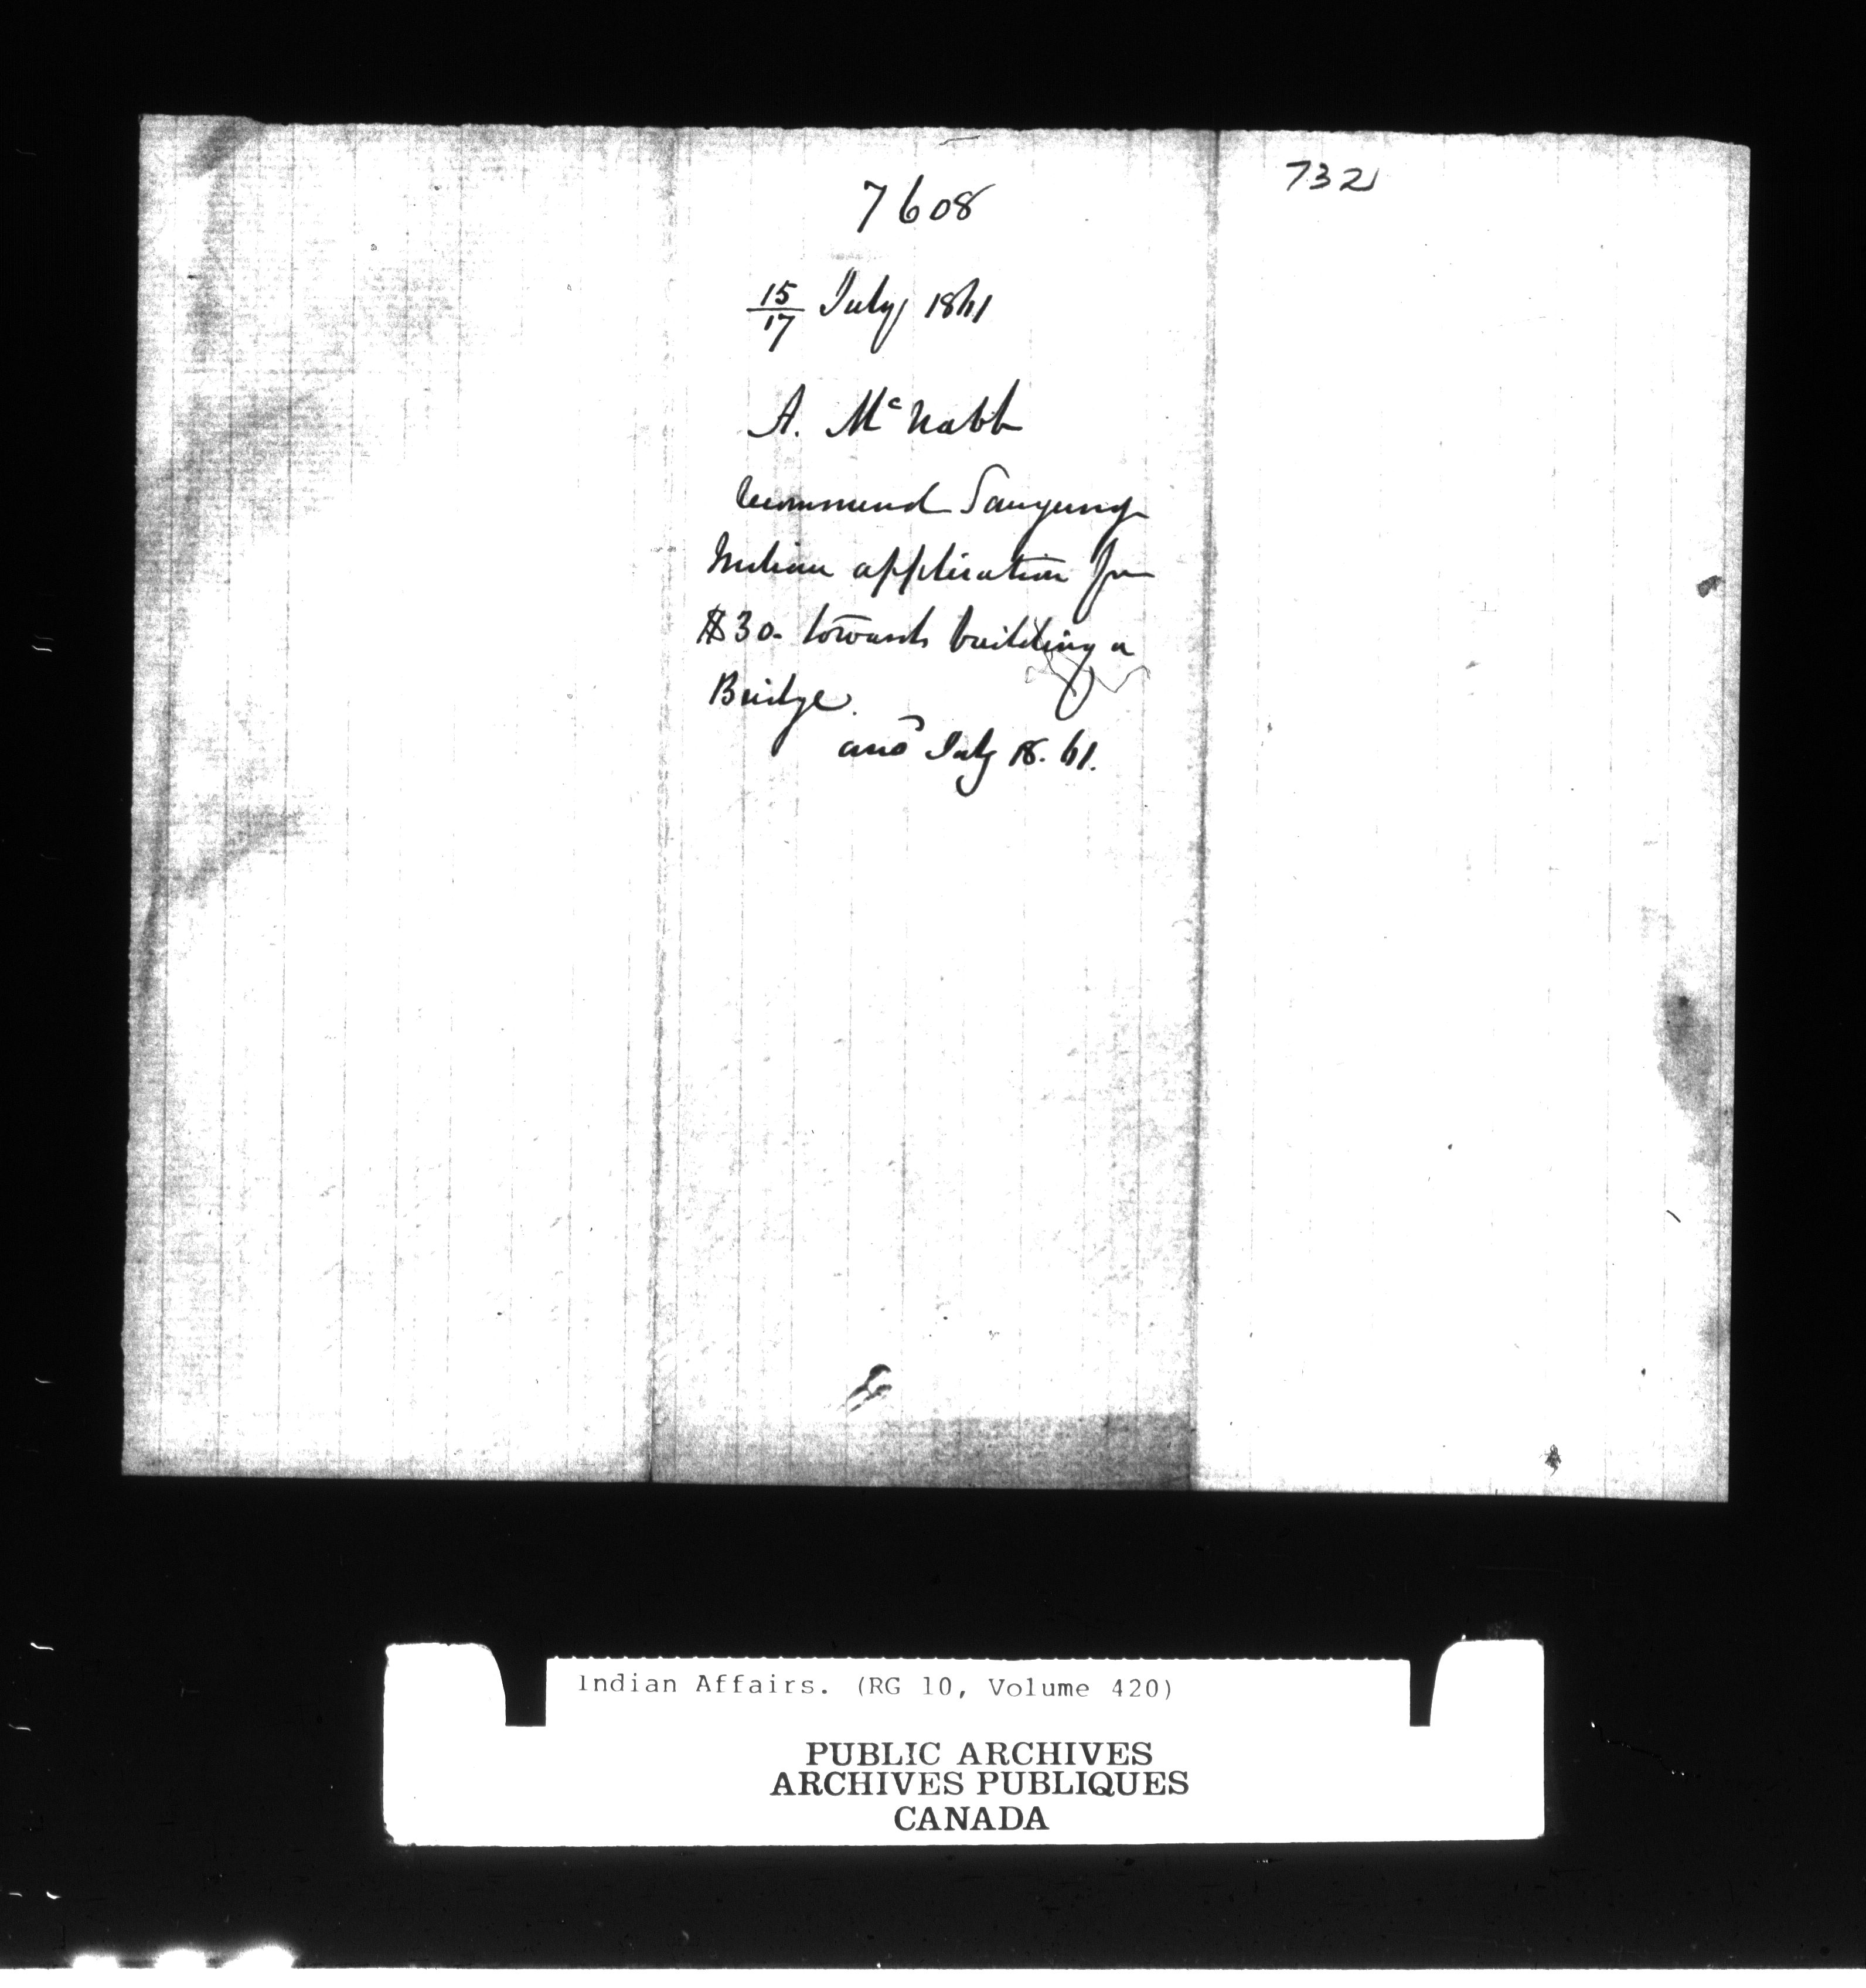 732
7608
15/17 July 1861
A. Mc Nabb
recommend Saugeeng
Indian application for
$30. towards building a
Bridge.
ansd July 18. 61.
Indian Affairs. (RG 10, Volume 420)
PUBLIC ARCHIVES
ARCHIVES PUBLIQUES
CANADA